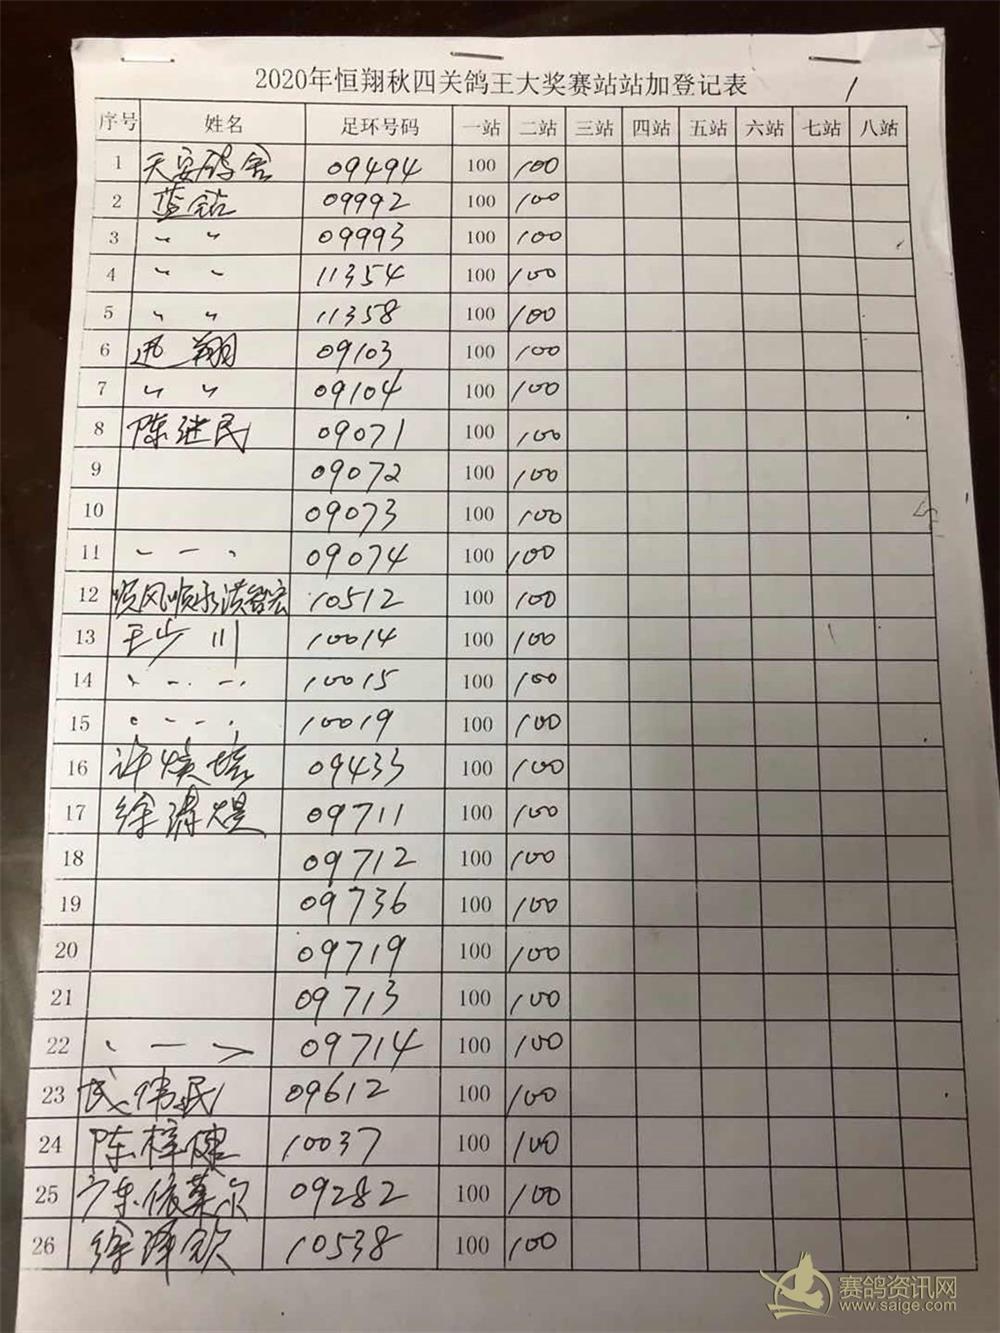 2020年恒翔秋四关鸽王大奖赛站站加登记表 1
序号 姓名 足环号码 一站 二站 三站 四站 五站 六站 七站 八站
1 天安鸽舍 09494 100 100
2 蓝钻 09992 100 100
3 〃 〃 09993 100 100
4 〃 〃 11354 100 100
5 〃 〃 11358 100 100
6 迅翔 09103 100 100
7 〃 〃 09104 100 100
8 陈继民 09071 100 100
9 09072 100 100
10 09073 100 100
11 09074 100 100
12 顺风顺水 10512 100 100
13 王少川 10014 100 100
14 10015 100 100
15 10019 100 100
16 许焕 09433 100 100
17 徐 09711 100 100
18 09712 100 100
19 09736 100 100
20 09719 100 100
21 09713 100 100
22 09714 100 100
23 伟民 09612 100 100
24 陈梓健 10037 100 100
25 广东依莱尔 09282 100 100
26 徐泽钦 10538 100 100
赛鸽资讯网
www.saige.com